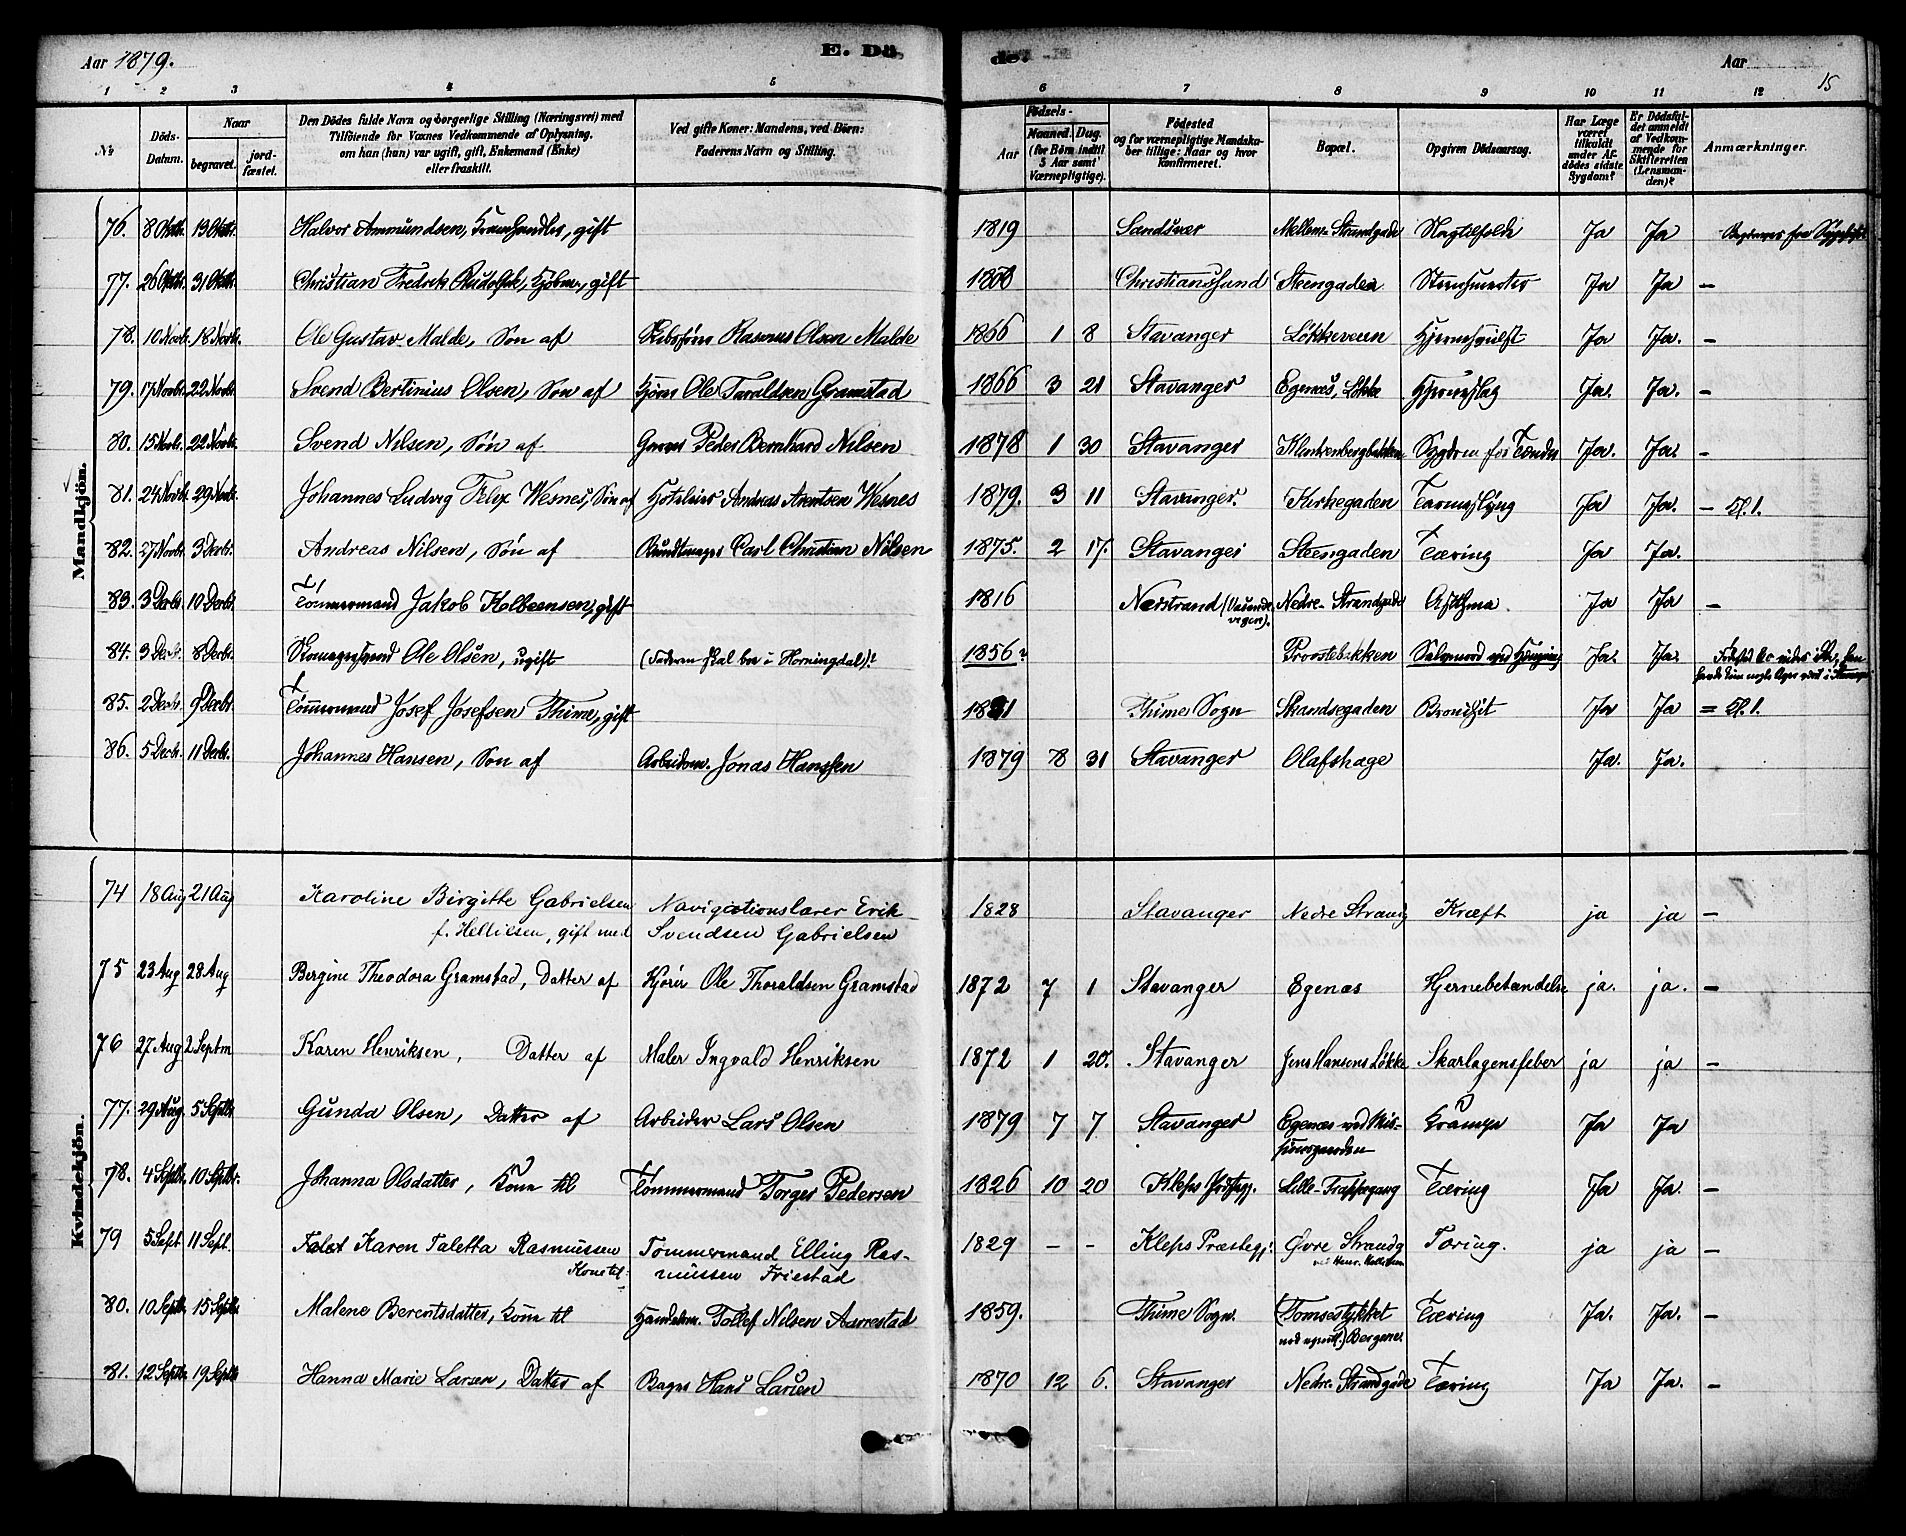 Aar 1879.
E. Dö
de.
Aar
15
1 2 3 4 5 6 7 8 9 10 11 12
No
Döds-Datum.
Naar
begravet.
jord-fæstet.
Den Dödes fulde Navn og borgerlige Stilling (Næringsvei) med
Tilföiende for Voxnes Vedkommende af Oplysning,
om han (hun) var ugift, gift, Enkemand (Enke)
eller fraskilt.
Ved gifte Koner: Mandens, ved Börn:
Faderens Navn og Stilling.
Födsels-
Aar
Maaned. Dag.
(for Börn indtil
5 Aar samt
Værnepligtige).
Födested
og for værnepligtige Mandska-
ber tillige: Naar og hvor
konfirmeret.
Bopæl.
Opgiven Dödsaarsag.
Har Læge
været
tilkaldt
under Af-
dödes sidste
Sygdom?
Er Dödsfal-
det anmeldt
af Vedkom-
mende for
Skifteretten
(Lensman-
den)?
Anmærkninger.
Mandkjön.
76. 8 Oktb. 13 Oktb. Halvor Ammundsen, Kramhandler, gift 1819 Sandsvær Mellem-Strandgade Ja Ja
77. 26 Oktb. 31 Oktb. Christian Fredrik Rudolph, gift Christianssund Steengaden Ja Ja –
78. 10 Novb. 18 Novb. Ole Gustav Malde, Søn af Skibsfører Rasmus Olsen Malde 1866 1 8 Stavanger Løkkeveien Ja Ja. –
79. 17 Novb. 22 Novb. Svend Bertinius Olsen, Søn af Kjører Ole Taraldsen Gramstad 1866 3 21 Stavanger Egenæs, Løkke Hjerneslag Ja. Ja. –
80. 15 Novb. 22 Novb. Svend Nilsen, Søn af Peder Bernhard Nilsen 1878 1 30 Stavanger Klinkenbergbakken Sygdom for Tænder Ja. Ja. –
81. 24 Novb. 29 Novb. Johannes Ludvig Felix Wesnes, Søn af Hotelleier Andreas Arentsen Wesnes 1879. 3 11 Stavanger. Kirkegaden Tarmslyng Ja Ja. – Kl. 1.
82. 27 Novb. 3 Decbr. Andreas Nilsen, Søn af Bundtmager Carl Christian Nilsen 1875. 2 17. Stavanger Steengaden Tæring Ja Ja.
83. 3 Decbr. 10 Decbr. Tømmermand Jakob Kolbeensen, gift 1816 Nedstrand Nedre-Strandgade Asthma. Ja Ja –
84. 3 Decbr. 8 Decbr. Ole Olsen, ugift (Faderen skal bo i Horningdal)? 1856? Provstebakken Selvmord ved Hængning Ja. Ja.
85. 2 Decbr. 9 Decbr. Tømmermand Josef Josefsen Thime, gift Thime Sogn Skandsegaden Bronchit Ja Ja = Kl. 1.
86. 5 Decbr. 11 Decbr. Johannes Hansen, Søn af Arbeidsm. Jonas Hanssen 1879 8 31 Stavanger Olafshage Ja. Ja.
Kvindekjön.
74 18 Aug 21 Aug Karoline Birgitte Gabrielsen Navigationslærer Erik 1828 Stavanger Nedre Strandg Kræft ja ja –
f. Helliesen, gift med Svendsen Gabrielsen
75 23 Aug 28 Aug Bergine Theodora Gramstad, Datter af Kjører Ole Thoraldsen Gramstad 1872 7 1 Stavanger Egenæs Hjernebetændelse ja. ja. –
76 27 Aug 2 Septm Karen Henriksen, Datter af Maler Ingvald Henriksen 1872 1 20. Stavanger Jens Hansens Løkke Skarlagensfeber ja ja –
77. 29 Aug. 5 Septbr. Gunda Olsen, Datter af Arbeider Lars Olsen 1879 7 7 Stavanger Egenæs ved Mis- Krampe Ja Ja
78. 4 Septbr. 10 Septbr. Johanna Olsdatter, Kone til Tømmermand Torger Pedersen 1826 10 20 Kleps Præstegj. Lille-Trappegang Tæring Ja Ja. –
79 5 Sept 11 Sept. Karen Taletta Rasmussen Tømmermand Elling Ras- 1829 – – Kleps Præstegj. Øvre Strandg Tæring. ja ja –
Kone til: mussen Friestad
80. 10 Septbr. 15 Septbr. Malene Berentsdatter, Kone til Handelsm. Tollef Nilsen Aarrestad 1859. Thime Sogn. (Tomsestykket Tæring Ja. Ja. –
Bergene.
81. 12 Septbr. 19 Septbr. Hanna Marie Larsen, Datter af Bager Hans Larsen 1870 12 6. Stavanger Nedre-Strandgade Tæring Ja Ja. –